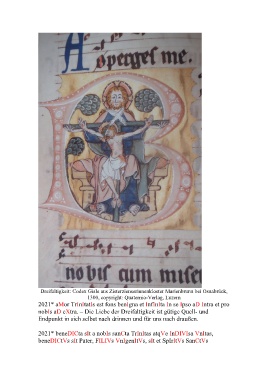 Asperges me.
nobis cum miser
Dreifaltigkeit: Codex Gisle aus Zisterzienserinnenkloster Marienbrunn bei Osnabrück,
1300, copyright: Quaternio-Verlag, Luzern
2021* aMor TrinItatis est fons benIgna et InfInIta in se Ipso aD Intra et pro
nobIs aD eXtra. – Die Liebe der Dreifaltigkeit ist gütige Quell- und
Endpunkt in sich selbst nach drinnen und für uns nach draußen.
2021* beneDICta sIt a nobis sanCta Trinitas atqVe InDIVIsa VnItas,
beneDICtVs sit Pater, FILIVs VnIgenItVs, sit et SpIrItVs SanCtVs